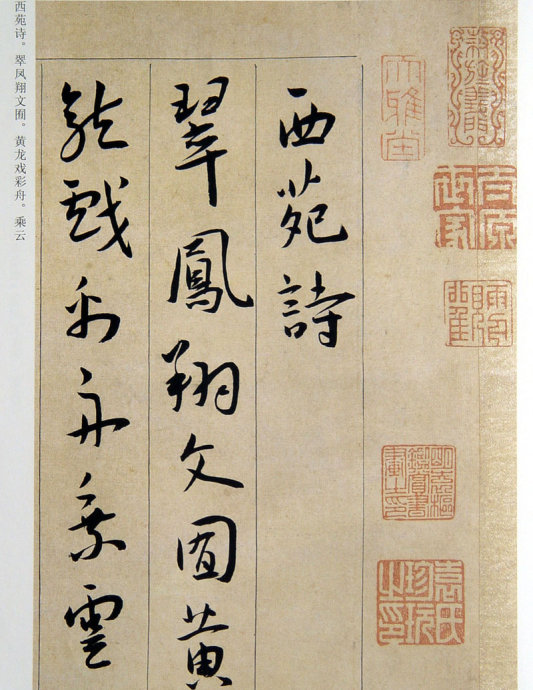 西苑诗。翠凤翔文囿。黄龙戏彩舟。乘云
西苑詩
翠鳳翔文囿黄
龍戲彩舟乘雲
大雅堂